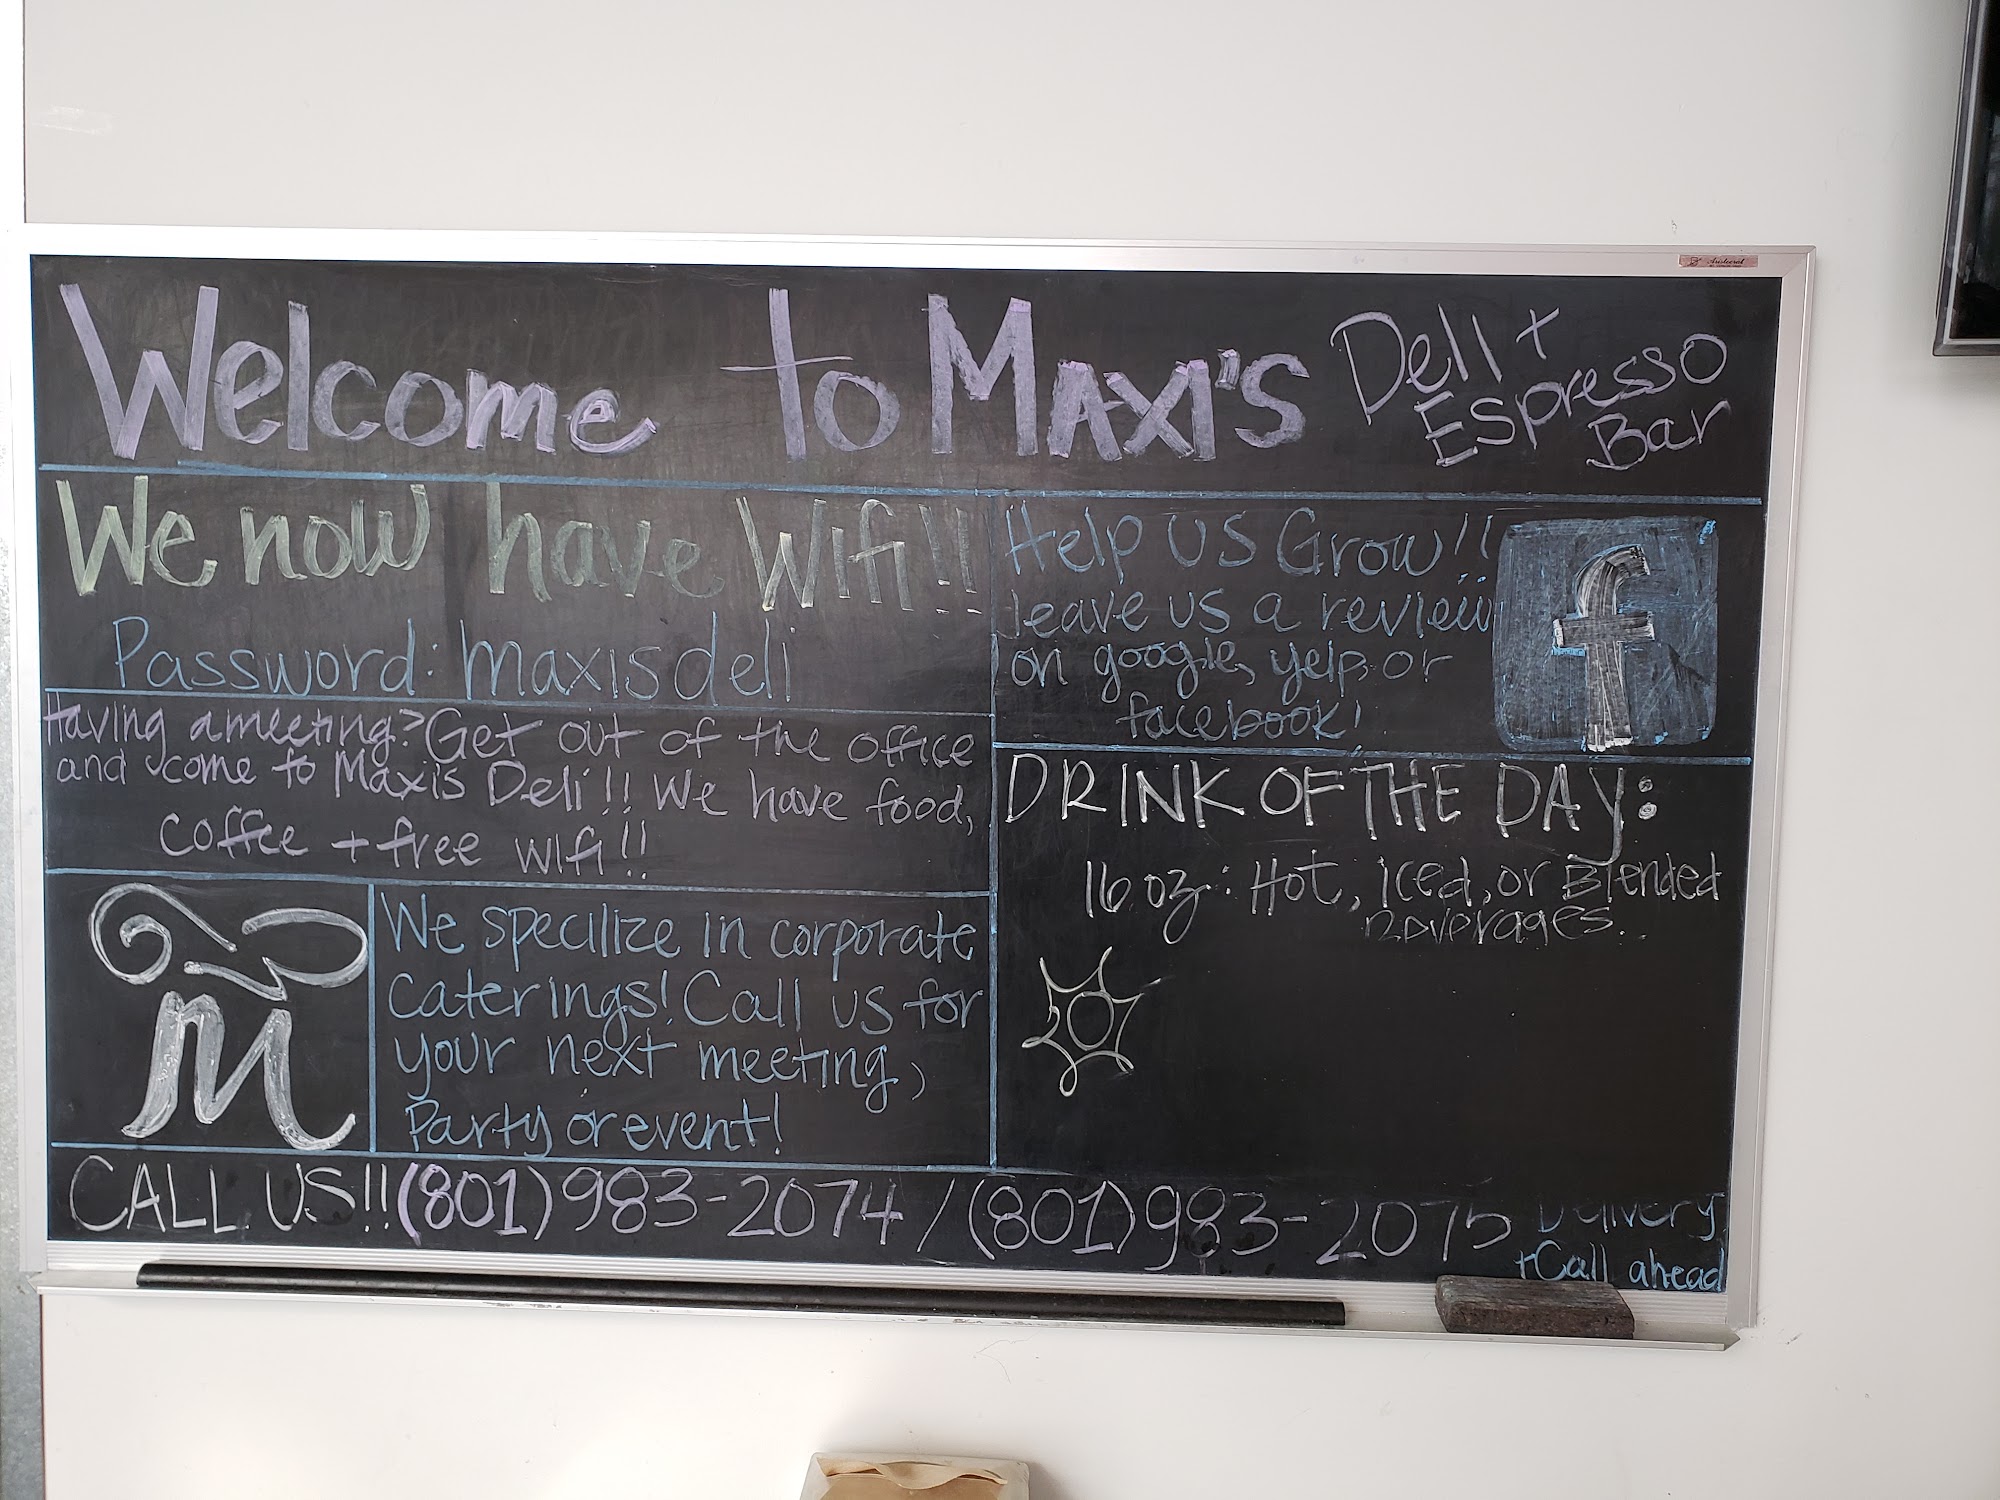 Welcome to MAXI'S
Deli +
Espresso
Bar
We now have Wifi!!
Password: maxisdeli
Having a meeting? Get out of the office
and come to Maxi's Deli!! We have food,
coffee + free wifi!!
Help us Grow!!
leave us a review
on google, yelp, or
facebook!
f
DRINK OF THE DAY:
16 oz: Hot, iced, or Blended
Beverages..
m
We specilize in corporate
caterings! Call us for
your next meeting,
Party or event!
CALL US!! (801) 983-2074 / (801) 983-2075
Delivery
+ Call ahead
Aristocrat